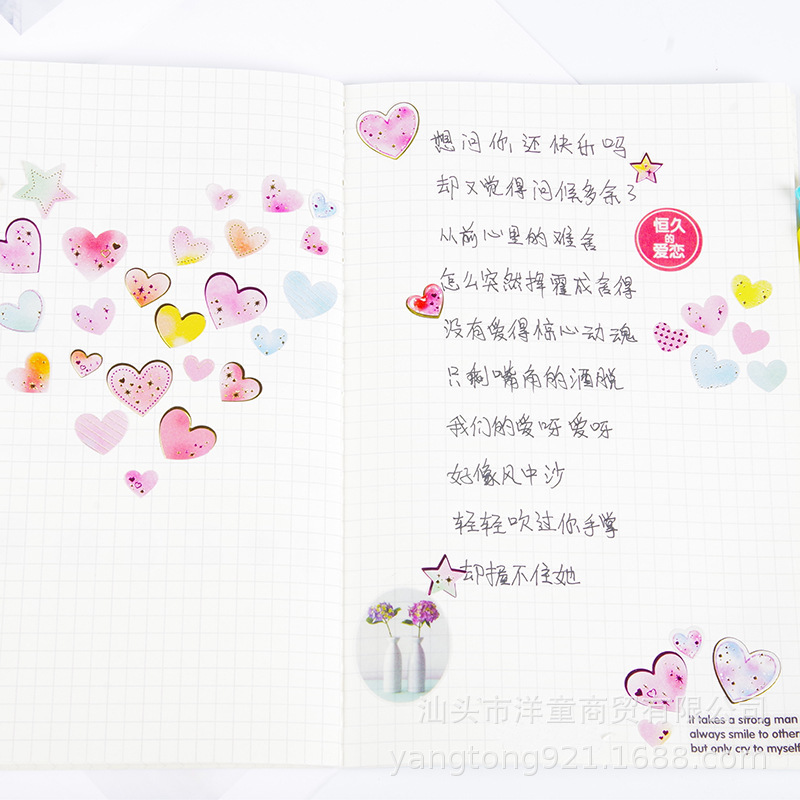 想问你还快乐吗
却又觉得问候多余了
从前心里的难舍
恒久
的
爱恋
怎么突然挥霍成舍得
没有爱得惊心动魂
只剩嘴角的洒脱
我们的爱呀爱呀
好像风中沙
轻轻吹过你手掌
却握不住她
汕头市洋童商贸有限公司
It takes a strong man
always smile to other
but only cry to myself
yangtong921.1688.com